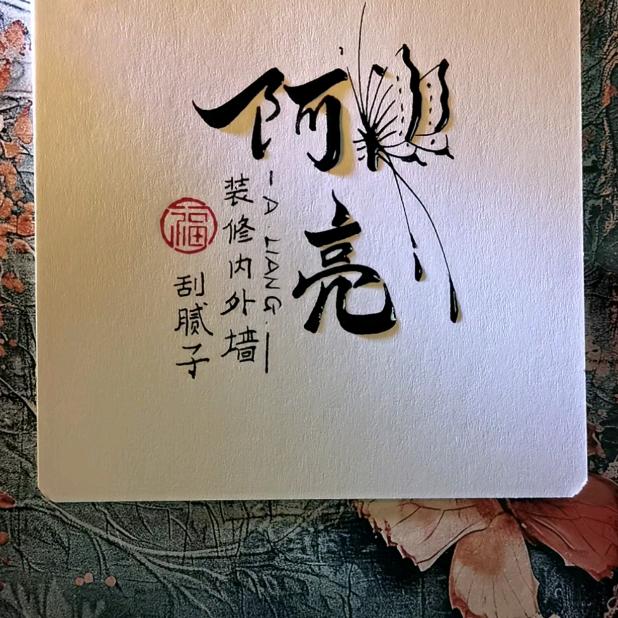 阿亮
-A LIANG.-
装修内外墙
刮腻子
福